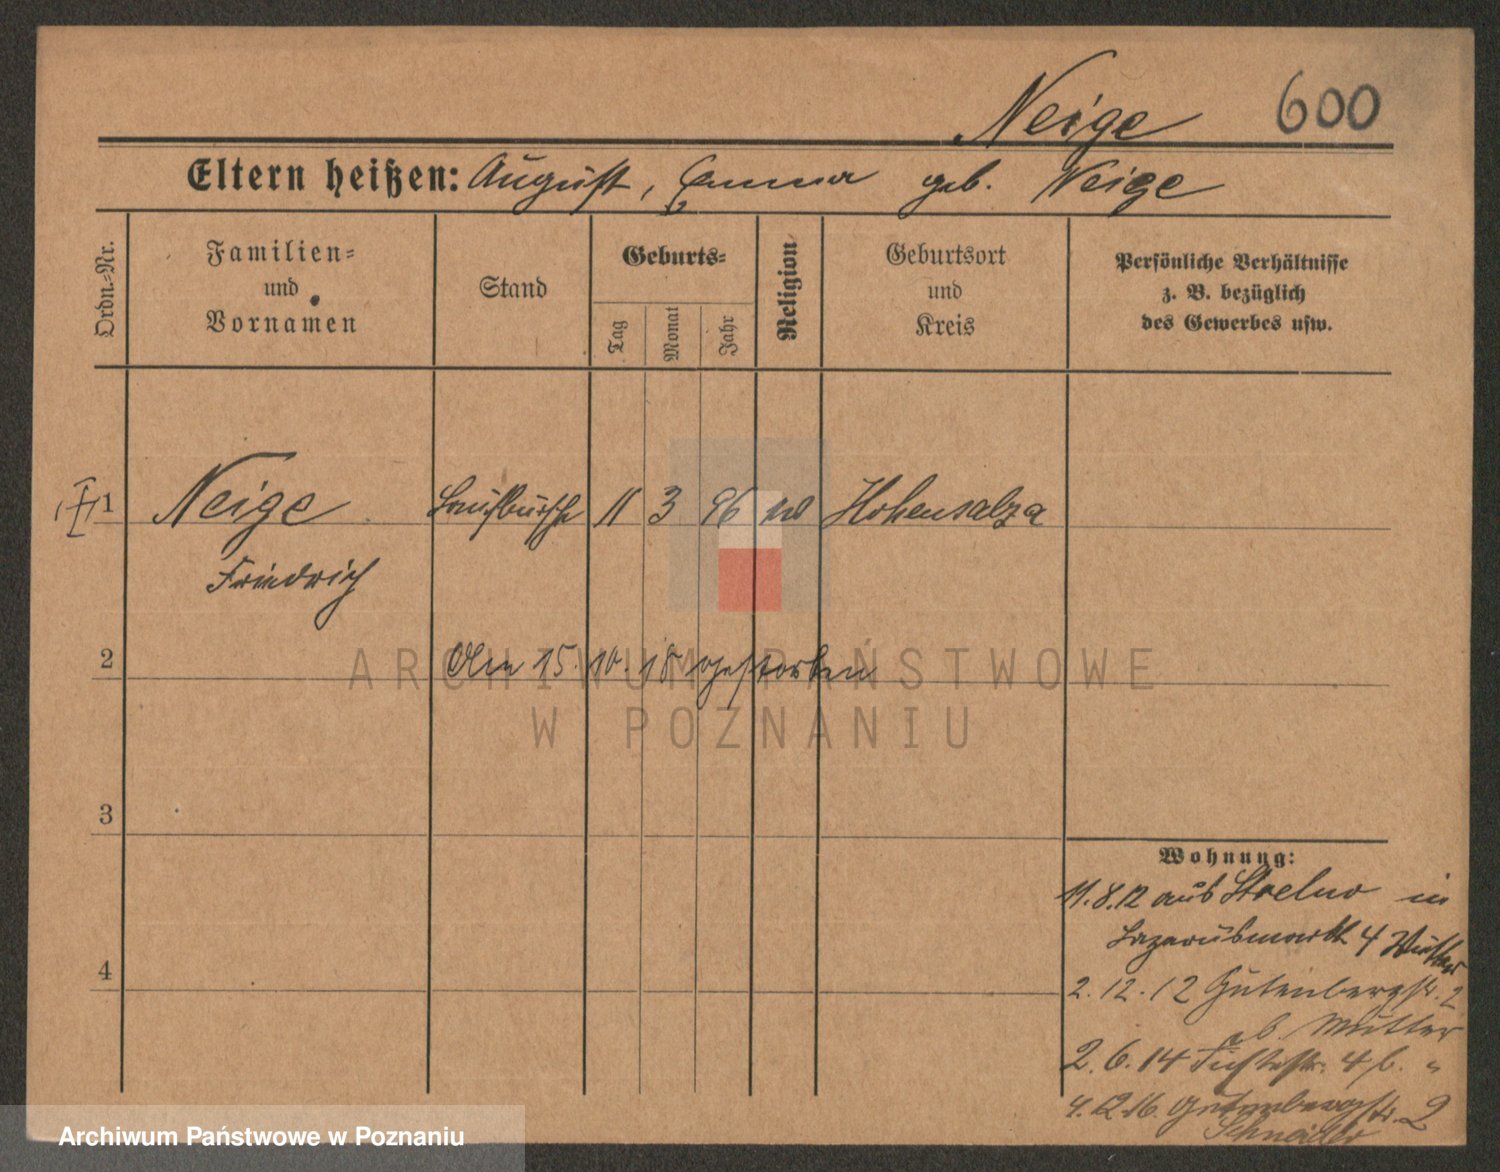 Neige 600
Eltern heißen: August, Emma geb. Neige
Ordn.-Nr.
Familien- und Vornamen
Stand
Geburts-
Tag
Monat
Jahr
Religion
Geburtsort und Kreis
Persönliche Verhältnisse
z. B. bezüglich
des Gewerbes usw.
1 Neige Laufbursche 11 3 96 Hohensalza
Friedrich
2 15.10.18 gestorben
3
4
Wohnung:
11.8.12 aus Strelno in
Lazarusmarkt 4 Mutter
2.12.12 Gutenbergstr. 2
b. Mutter
2.6.14 Fichtestr. 4 b. "
4.12.16. Gutenbergstr. 2
ARCHIWUM PAŃSTWOWE
W POZNANIU
Archiwum Państwowe w Poznaniu